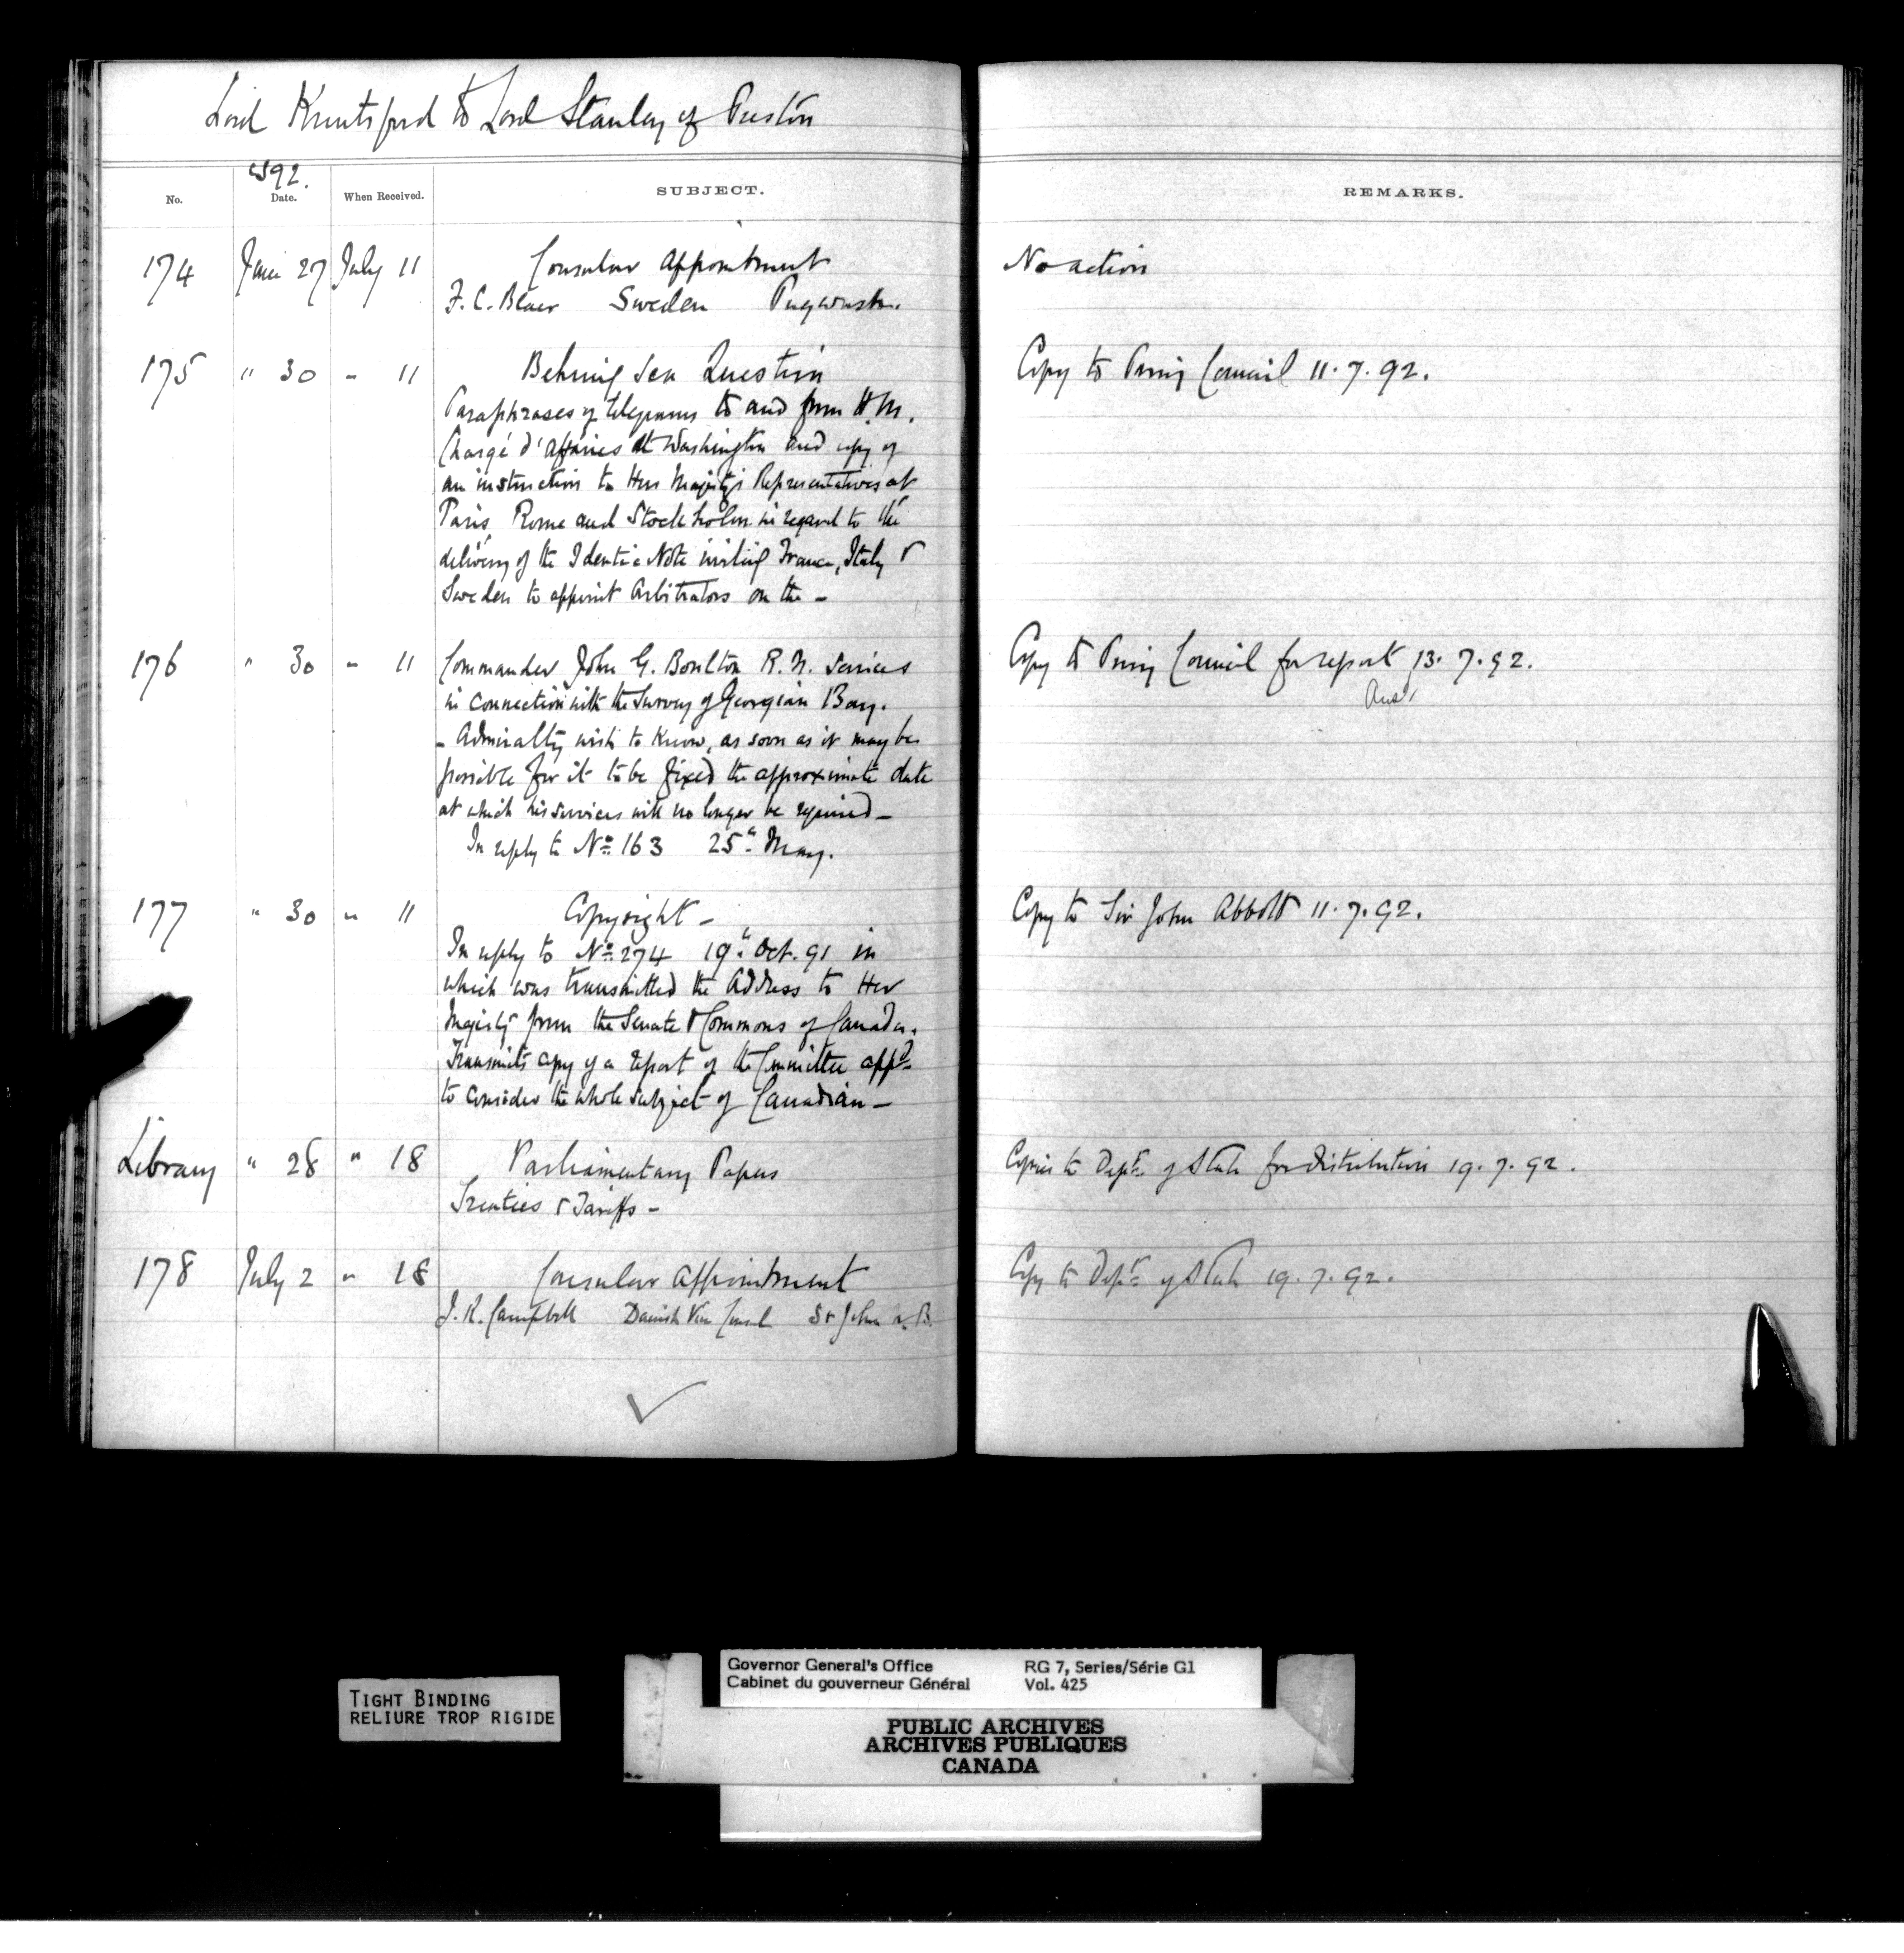 Lord Knutsford to Lord Stanley of Preston
1892.
No. Date. When Received. SUBJECT. REMARKS.
174 June 27 July 11 Consular Appointment No action
F. C. Blair Sweden Pugwash.
175 " 30 " 11 Behring Sea Question Copy to Privy Council 11.7.92.
Paraphrases of telegrams to and from H.M.
Chargé d'Affaires at Washington and copy of
an instruction to Her Majesty's Representatives at
Paris, Rome and Stockholm in regard to the
delivery of the Identic Note inviting France, Italy &
Sweden to appoint Arbitrators on the -
176 " 30 " 11 Commander John G. Boulton R.N. services Copy to Privy Council for report 13.7.92.
in connection with the Survey of Georgian Bay. Ansd
- Admiralty wish to know, as soon as it may be
possible for it to be fixed the approximate date
at which his services will no longer be required -
In reply to No. 163 25th May.
177 " 30 " 11 Copyright - Copy to Sir John Abbott 11.7.92.
In reply to No. 274 19th Oct. 91 in
which was transmitted the Address to Her
Majesty from the Senate & Commons of Canada.
Transmits copy of a report of the Committee appd
to consider the whole subject of Canadian -
Library " 28 " 18 Parliamentary Papers Copies to Dept. of State for distribution 19.7.92.
Treaties & Tariffs -
178 July 2 " 18 Consular Appointment Copy to Dept. of State 19.7.92.
J. R. Campbell Danish Vice Consul St John N.B.
TIGHT BINDING
RELIURE TROP RIGIDE
Governor General's Office RG 7, Series/Série G1
Cabinet du gouverneur Général Vol. 425
PUBLIC ARCHIVES
ARCHIVES PUBLIQUES
CANADA